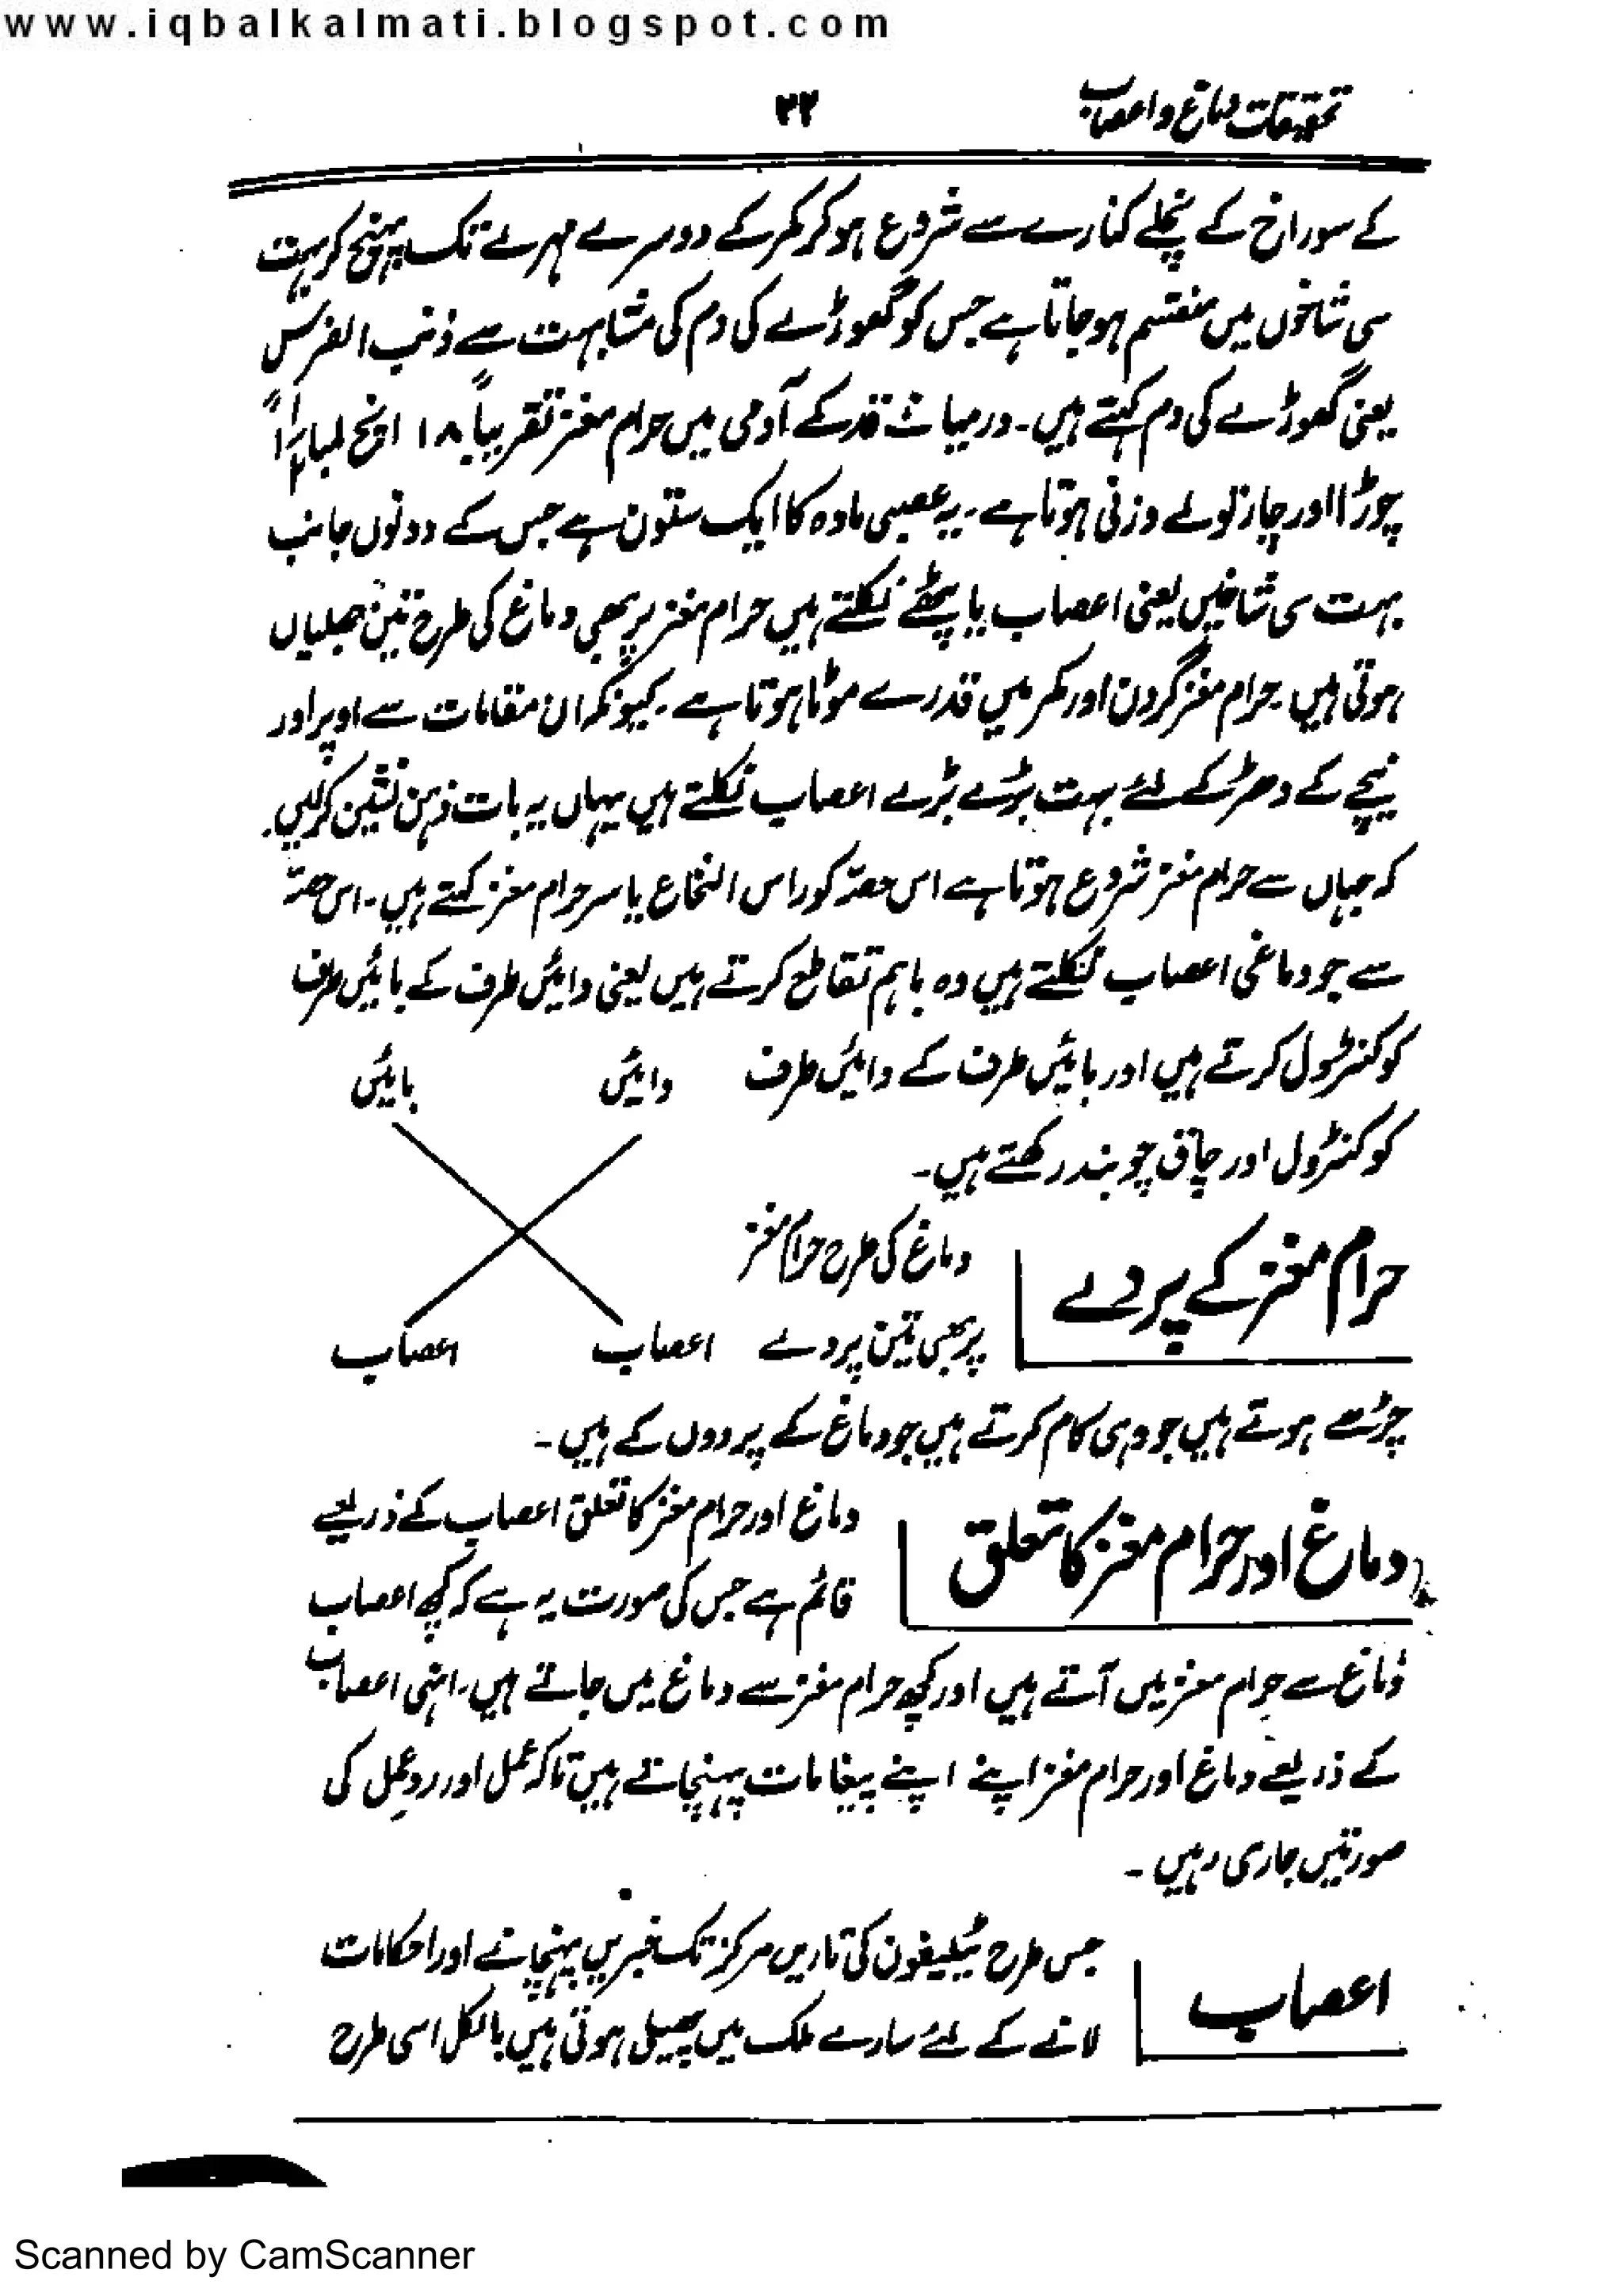 www.iqbalkalmati.blogspot.com
تحقیقات دماغ و اعصاب
۲۲
کے سوراخ کے نچلے کنارے سے شروع ہو کر کمر کے دوسرے مہرے تک پہنچ کر بہت
سی شاخوں میں منقسم ہو جاتا ہے جس کو گھوڑے کی دم کی مشابہت سے ذنب الفرس
یعنی گھوڑے کی دم کہتے ہیں۔ درمیانے قد کے آدمی میں حرام مغز تقریباً ۱۸ انچ لمبا
چوڑا اور چار تولے وزنی ہوتا ہے۔ یہ عصبی مادہ کا ایک ستون ہے جس کے دونوں جانب
بہت سی شاخیں یعنی اعصاب یا پٹھے نکلتے ہیں حرام مغز پر بھی دماغ کی طرح تین جھلیاں
ہوتی ہیں۔ حرام مغز گردن اور کمر میں قدرے موٹا ہوتا ہے۔ کیونکہ ان مقامات سے اوپر اور
نیچے کے دھڑ کے لئے بہت بڑے بڑے اعصاب نکلتے ہیں یہاں یہ بات ذہن نشین کرلیں۔
کہ جہاں سے حرام مغز شروع ہوتا ہے اس حصہ کو راس النخاع یا سر حرام مغز کہتے ہیں۔ اس حصہ
سے جو دماغی اعصاب نکلتے ہیں وہ باہم تقاطع کرتے ہیں یعنی دائیں طرف کے بائیں طرف
کو کنٹرول کرتے ہیں اور بائیں طرف کے دائیں طرف
دائیں بائیں
کو کنٹرول اور چاق چوبند رکھتے ہیں۔
حرام مغز کے پردے
دماغ کی طرح حرام مغز
پر بھی تین پردے
اعصاب اعصاب
چڑھے ہوتے ہیں جو وہی کام کرتے ہیں جو دماغ کے پردوں کے ہیں۔
دماغ اور حرام مغز کا تعلق
دماغ اور حرام مغز کا تعلق اعصاب کے ذریعے
قائم ہے جس کی صورت یہ ہے کہ کچھ اعصاب
دماغ سے حرام مغز میں آتے ہیں اور کچھ حرام مغز سے دماغ میں جاتے ہیں۔ انہی اعصاب
کے ذریعے دماغ اور حرام مغز اپنے اپنے پیغامات پہنچاتے ہیں تاکہ عمل اور ردِ عمل کی
صورتیں جاری رہیں۔
اعصاب
جس طرح ٹیلیفون کی تاریں مرکز تک خبریں پہنچانے اور احکامات
لانے کے لئے سارے ملک میں پھیلی ہوتی ہیں بالکل اسی طرح
Scanned by CamScanner